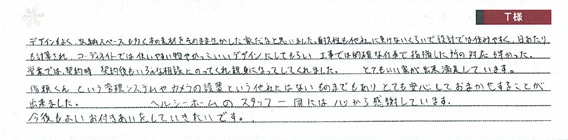 T様
デザインもよく、収納スペースも多く木の素材をそのまま生かした家だなと思いました。耐震性も他社に負けないくらいで設計では住みやすく、日あたり
も計算され、コーディネイトでは使いやすい物やかっこいいデザインにしてもらい 工事では的確な仕事で指摘した所の対応も早かった。
営業では契約時、契約後もいろんな相談にのってくれ親身になってしてくれました。 とてもいい家が出来満足しています。
信頼くん という管理システムやカメラの設置という他社にはないものまでもあり とても安心しておまかせすることが
出来ました。 ヘルシーホームのスタッフ一同には心から感謝しています。
今後もよいお付きあいをしていきたいです。